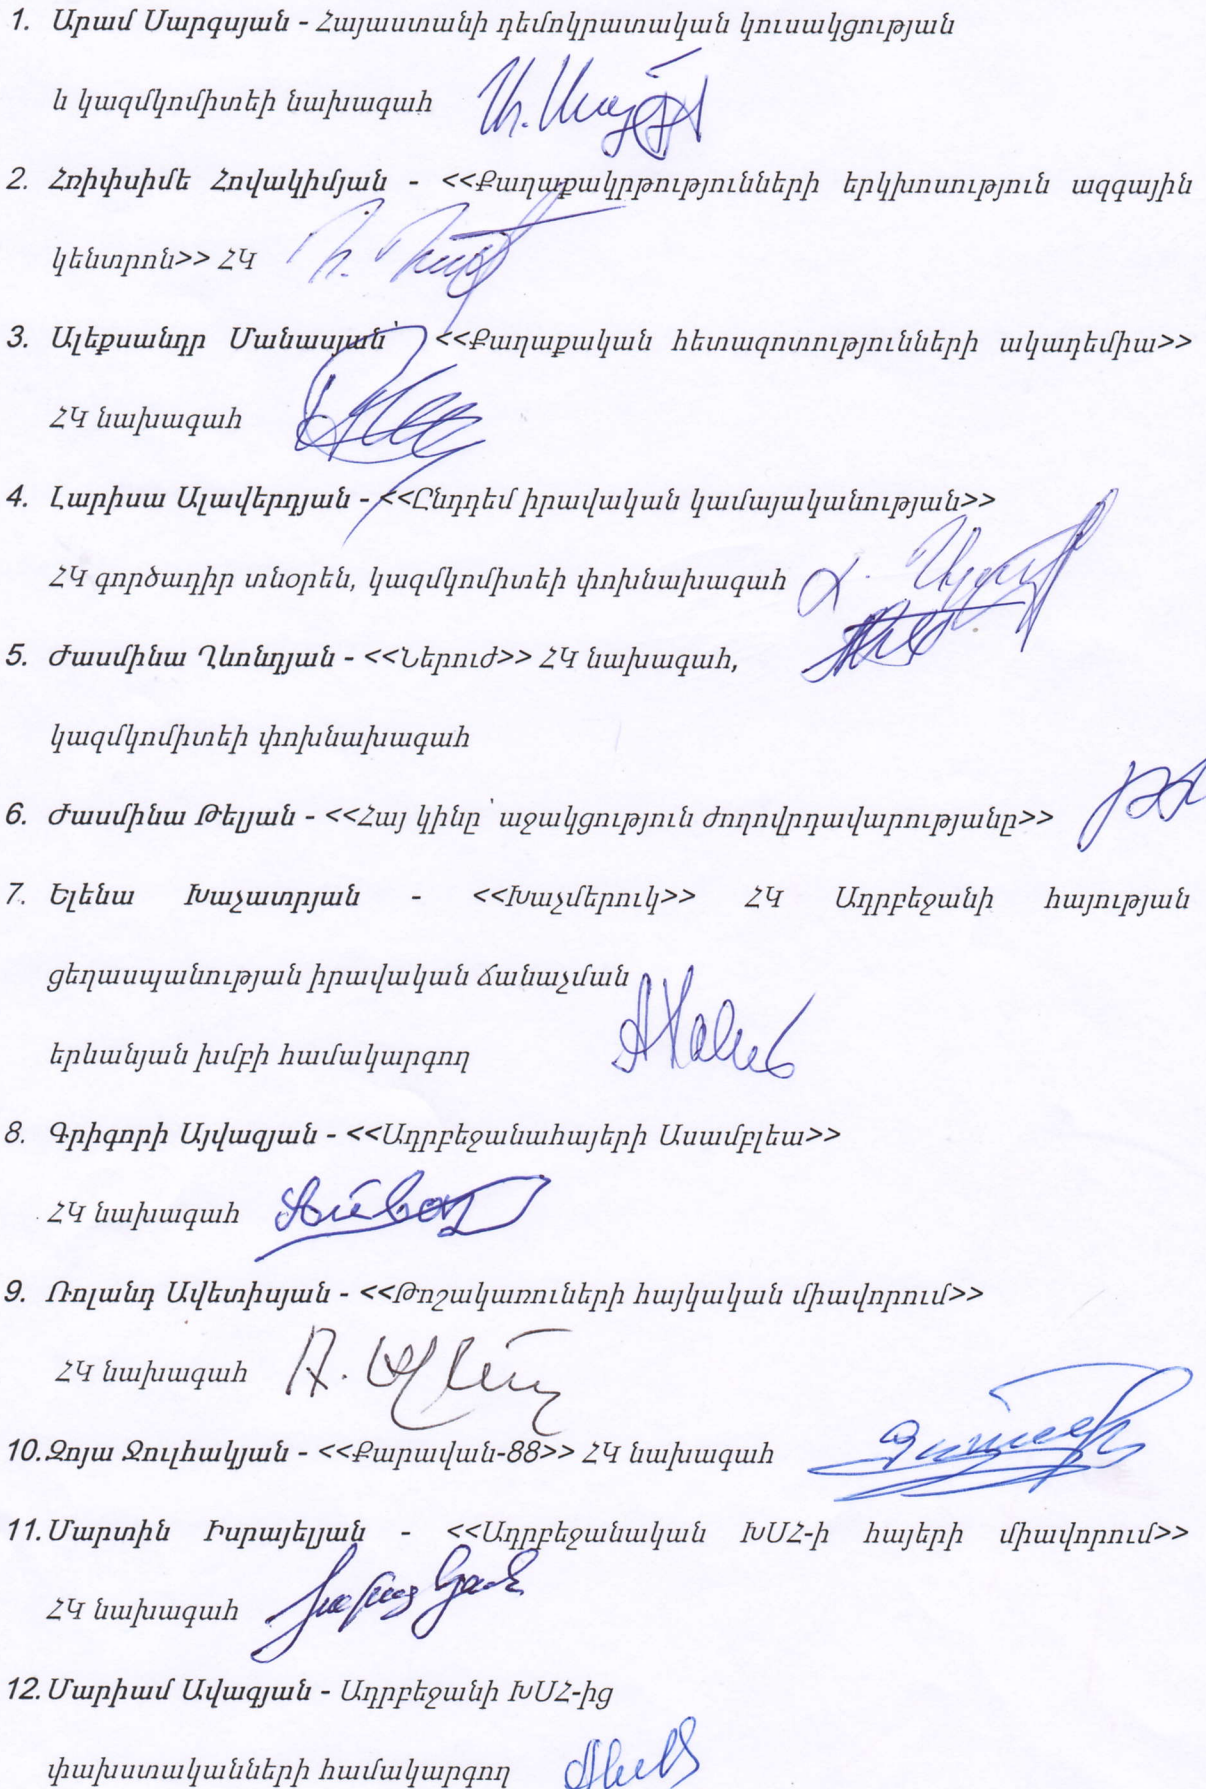 1. Արամ Սարգսյան - Հայաստանի դեմոկրատական կուսակցության
և կազմկոմիտեի նախագահ
2. Հռիփսիմե Հովակիմյան - <<Քաղաքակրթությունների երկխոսություն ազգային
կենտրոն>> ՀԿ
3. Ալեքսանդր Մանասյան՝ <<Քաղաքական հետազոտությունների ակադեմիա>>
ՀԿ նախագահ
4. Լարիսա Ալավերդյան - <<Ընդդեմ իրավական կամայականության>>
ՀԿ գործադիր տնօրեն, կազմկոմիտեի փոխնախագահ
5. Ժասմինա Ղևոնդյան - <<Ներուժ>> ՀԿ նախագահ,
կազմկոմիտեի փոխնախագահ
6. Ժասմինա Թելյան - <<Հայ կինը՝ աջակցություն ժողովրդավարությանը>>
7. Ելենա Խաչատրյան - <<Խաչմերուկ>> ՀԿ Ադրբեջանի հայության
ցեղասպանության իրավական ճանաչման
երևանյան խմբի համակարգող
8. Գրիգորի Այվազյան - <<Ադրբեջանահայերի Ասամբլեա>>
ՀԿ նախագահ
9. Ռոլանդ Ավետիսյան - <<Թոշակառուների հայկական միավորում>>
ՀԿ նախագահ
10. Զոյա Ջուլհակյան - <<Քարավան-88>> ՀԿ նախագահ
11. Մարտին Իսրայելյան - <<Ադրբեջանական ԽՍՀ-ի հայերի միավորում>>
ՀԿ նախագահ
12. Մարիամ Ավագյան - Ադրբեջանի ԽՍՀ-ից
փախստականների համակարգող